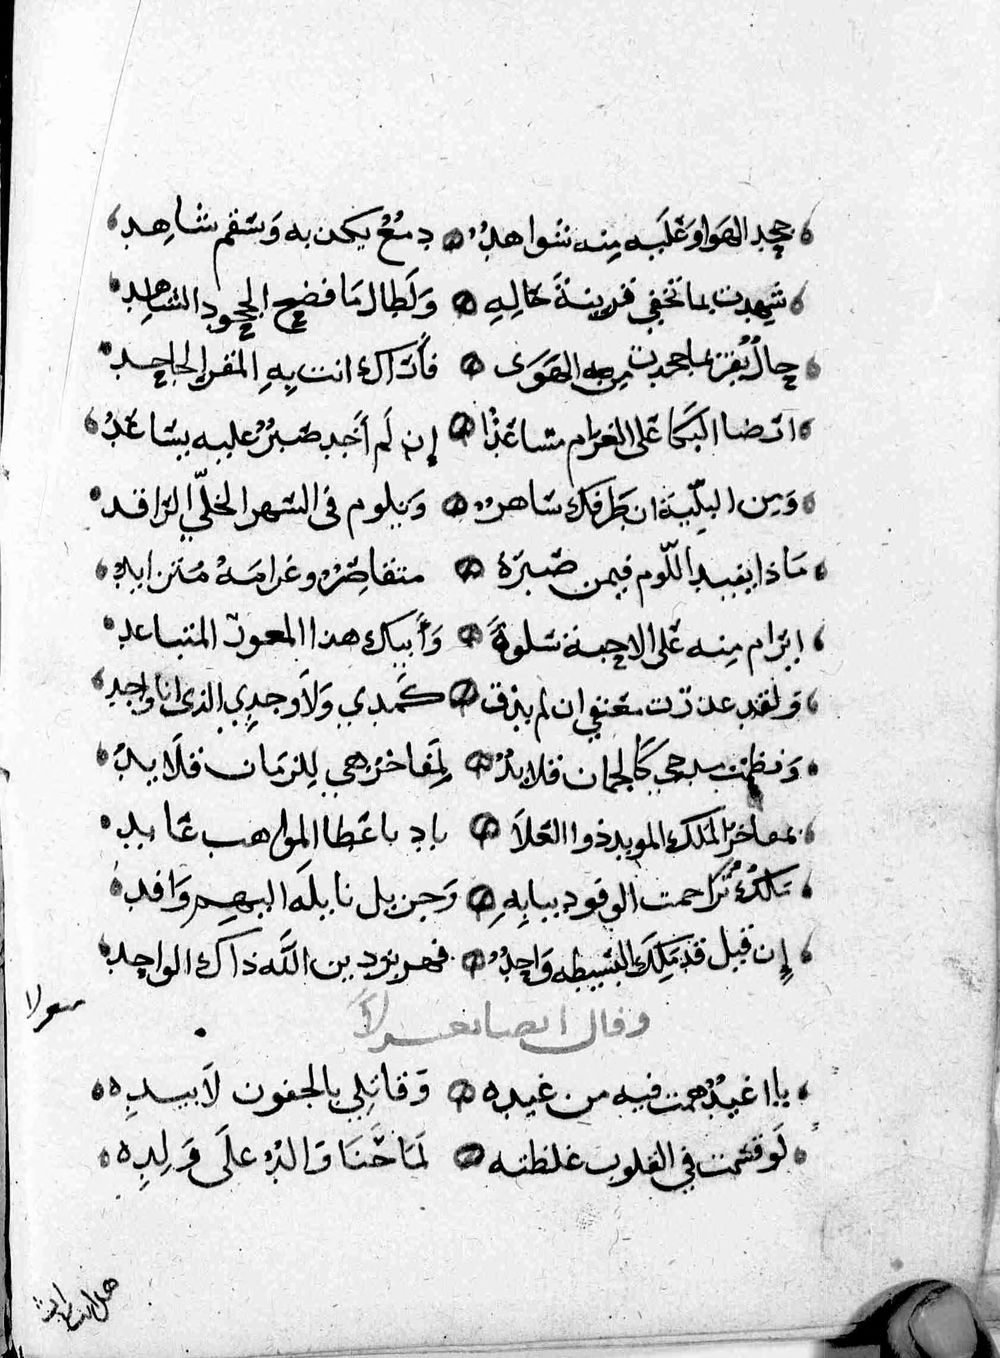 جحد الهوا وعليه منه شواهد دمع يكن به وسقم شاهد
شهدت بما تخفي قرينة حاله ولطال ما فضح الجحود الشاهد
حال يقر بما جحدت من الهوى فأراك انت به المقر الجاحد
اترضا البكا على الغرام مساعدا إن لم أجد صبر عليه يساعد
ومن البلية ان طرفك ساهر ويلوم في السهر الخلي الراقد
ماذا يفيد اللوم فيمن صبره متقاصر وغرامه متزايد
ايرام منه على الاحبة سلوة وأبيك هذا المعوز المتباعد
ولقد عذرت معنفي ان لم يذق كمدي ولا وجدي الذي انا واجد
ونظمت مدحي كالجمان قلايد لمفاخر هي للزمان قلايد
بمفاخر الملك المويد ذوا العلا باد باعطا المواهب عايد
ملك تزاحمت الوفود ببابه وجزيل نايله اليهم وافد
إن قيل قد ملك البسيطه واحد فهزبر دين الله ذاك الواحد
وقال ايضا تغزلا
يا اغيد همت فيه من غيده وقاتلي بالجفون لا بيده
لو قسمت في القلوب غلظته لما حنا والد على ولده